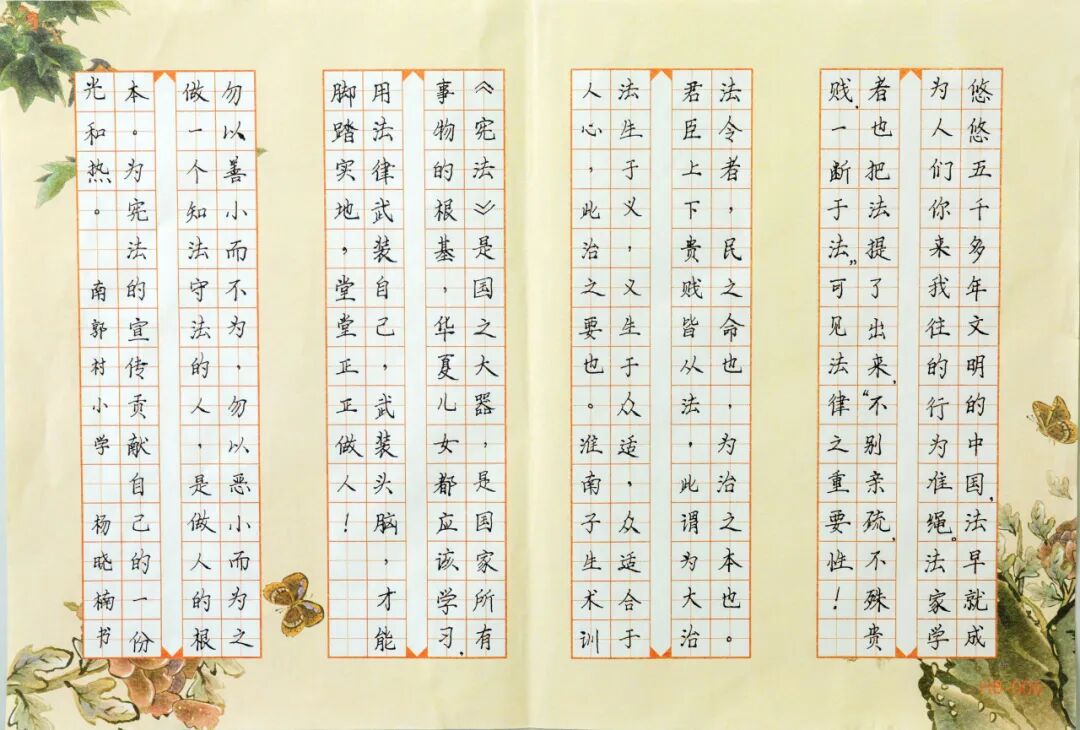 悠悠五千多年文明的中国,法早就成
为人们你来我往的行为准绳。法家学
者也把法提了出来,“不别亲疏,不殊贵
贱,一断于法”可见法律之重要性!
法令者,民之命也,为治之本也。
君臣上下贵贱皆从法,此谓为大治
法生于义,义生于众适,众适合于
人心,此治之要也。淮南子生术训
《宪法》是国之大器,是国家所有
事物的根基,华夏儿女都应该学习,
用法律武装自己,武装头脑,才能
脚踏实地,堂堂正正做人!
勿以善小而不为,勿以恶小而为之
做一个知法守法的人,是做人的根
本。为宪法的宣传贡献自己的一份
光和热。 南郭村小学 杨晓楠书